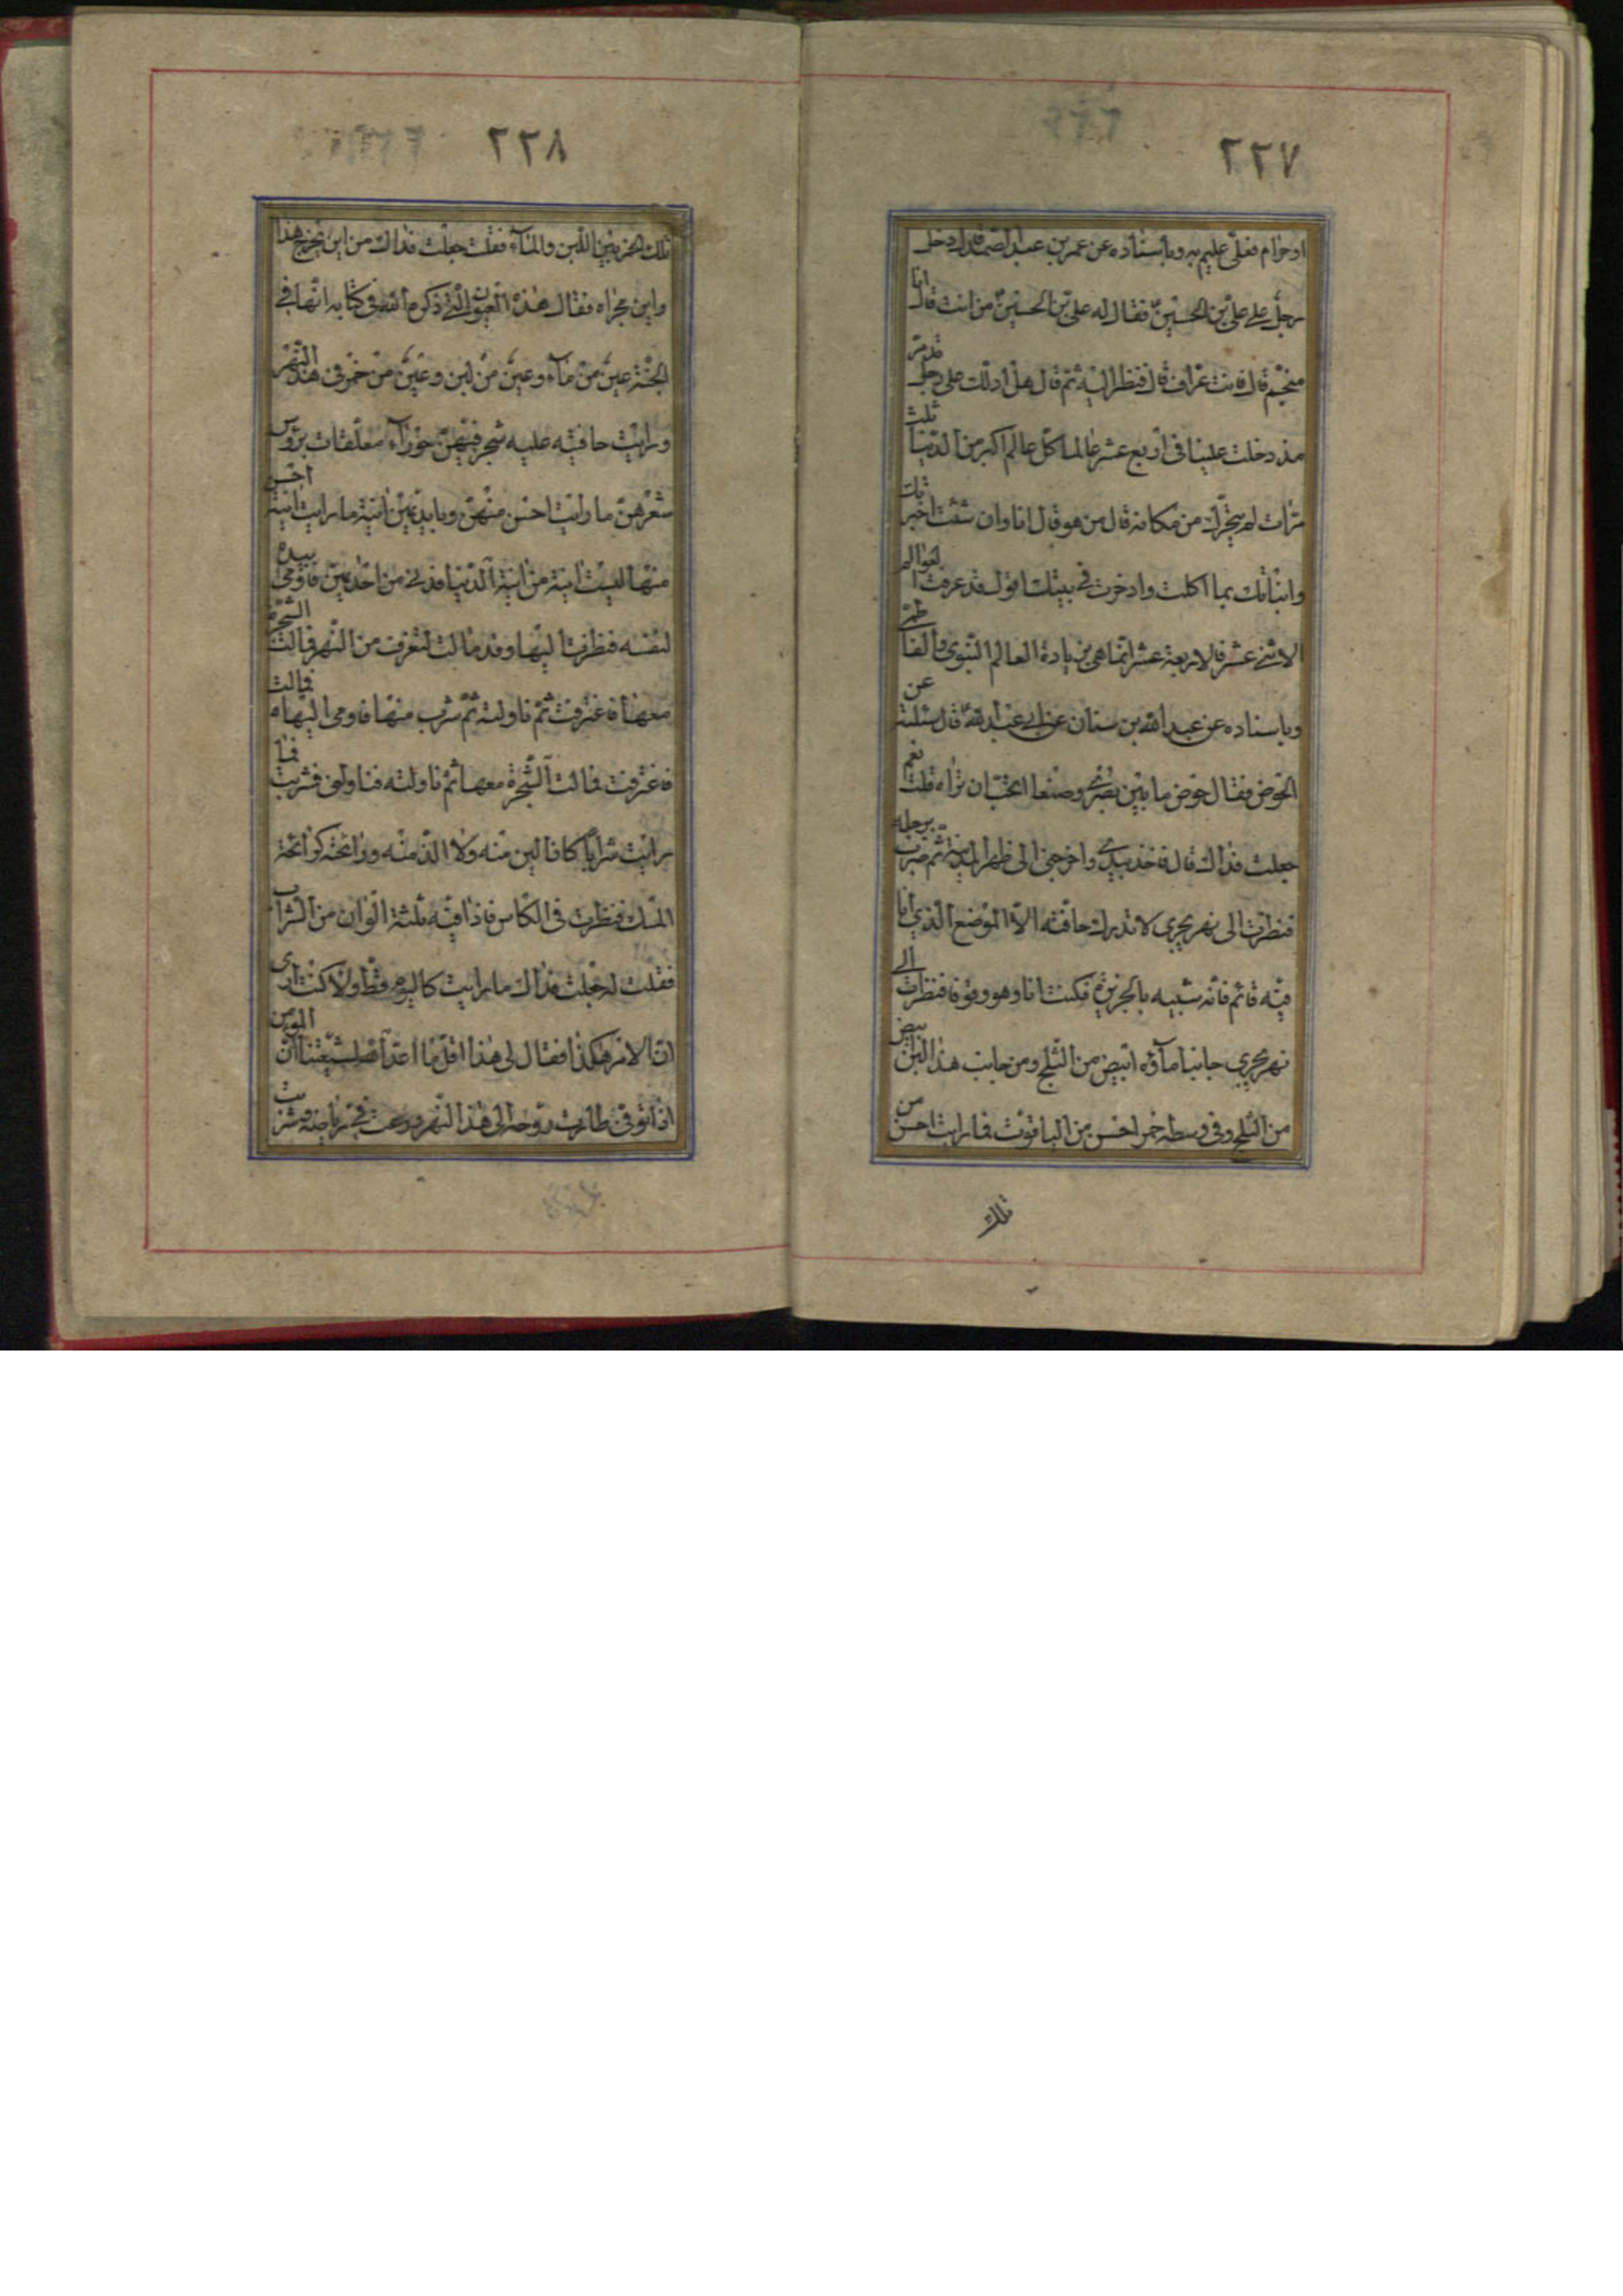 ٢٢٧
او حرام فعلى عليم به وباسناده عن عمر بن عبد الصمد قال دخل
رجل على علي بن الحسين فقال له علي بن الحسين من انت قال انا
منجم قال فانت عراف قال فنظر اليه ثم قال هل ادلك على رجل قد مر
مذ دخلت علينا في اربع عشر عالما كل عالم اكبر من الدنيا ثلث
مرات لم يتحرك من مكانه قال من هو قال انا وان شئت اخبرتك
وانباتك بما اكلت وادخرت في بيتك اقول قد عرفت العوالم
الاثنى عشر فالاربعة عشر انما هي بزيادة العالم النبوي والفاطمي
وباسناده عن عبد الله بن سنان عن ابي عبد الله قال سئلته عن
الحوض فقال حوض ما بين بصرى وصنعا اتحب ان تراه قلت نعم
جعلت فداك قال فاخذ بيدي واخرجني الى ظهر المدينة ثم ضرب برجله
فنظرت الى نهر يجري لا تدرك حافته الا الموضع الذي انا
فيه قائم فانه شبيه بالجزيرة فكنت انا وهو وقوفا فنظرت الى
نهر يجري جانبا ماؤه ابيض من الثلج ومن جانب هذا لبن ابيض
من الثلج وفي وسطه خمر احسن من الياقوت فما رايت احسن من
تلك
٢٢٨
تلك الخمر بين اللبن والماء فقلت جعلت فداك من اين يخرج هذا
واين مجراه فقال هذه العيون التي ذكره الله في كتابه انها في
الجنة عين من ماء وعين من لبن وعين من خمر في هذا النهر
ورايت حافتيه عليه شجر فيهن حوراء معلقات برؤس
شعرهن ما رايت احسن منهن وبايديهن انية ما رايت انية احسن
منها ليست انية من انية الدنيا فدنى من احديهن فاومى بيده
لتسقه فنظرت اليها وقد مالت لتغرف من النهر فمالت الشجرة
معها فاغترفت ثم ناولته ثم شرب منها فاومى اليها فمالت
فاغترفت فمالت الشجرة معها ثم ناولته فناولني فشربت فما
رايت شرابا كان الين منه ولا الذ منه ورائحته كرائحة
المسك فنظرت في الكاس فاذا فيه ثلثة الوان من الشراب
فقلت له جعلت فداك ما رايت كاليوم قط ولا كنت ارى
ان الامر هكذا فقال لي هذا اقل ما اعد الله لشيعتنا ان المومن
اذا توفى طارت روحه الى هذا النهر ورعت في رياضه وشربت